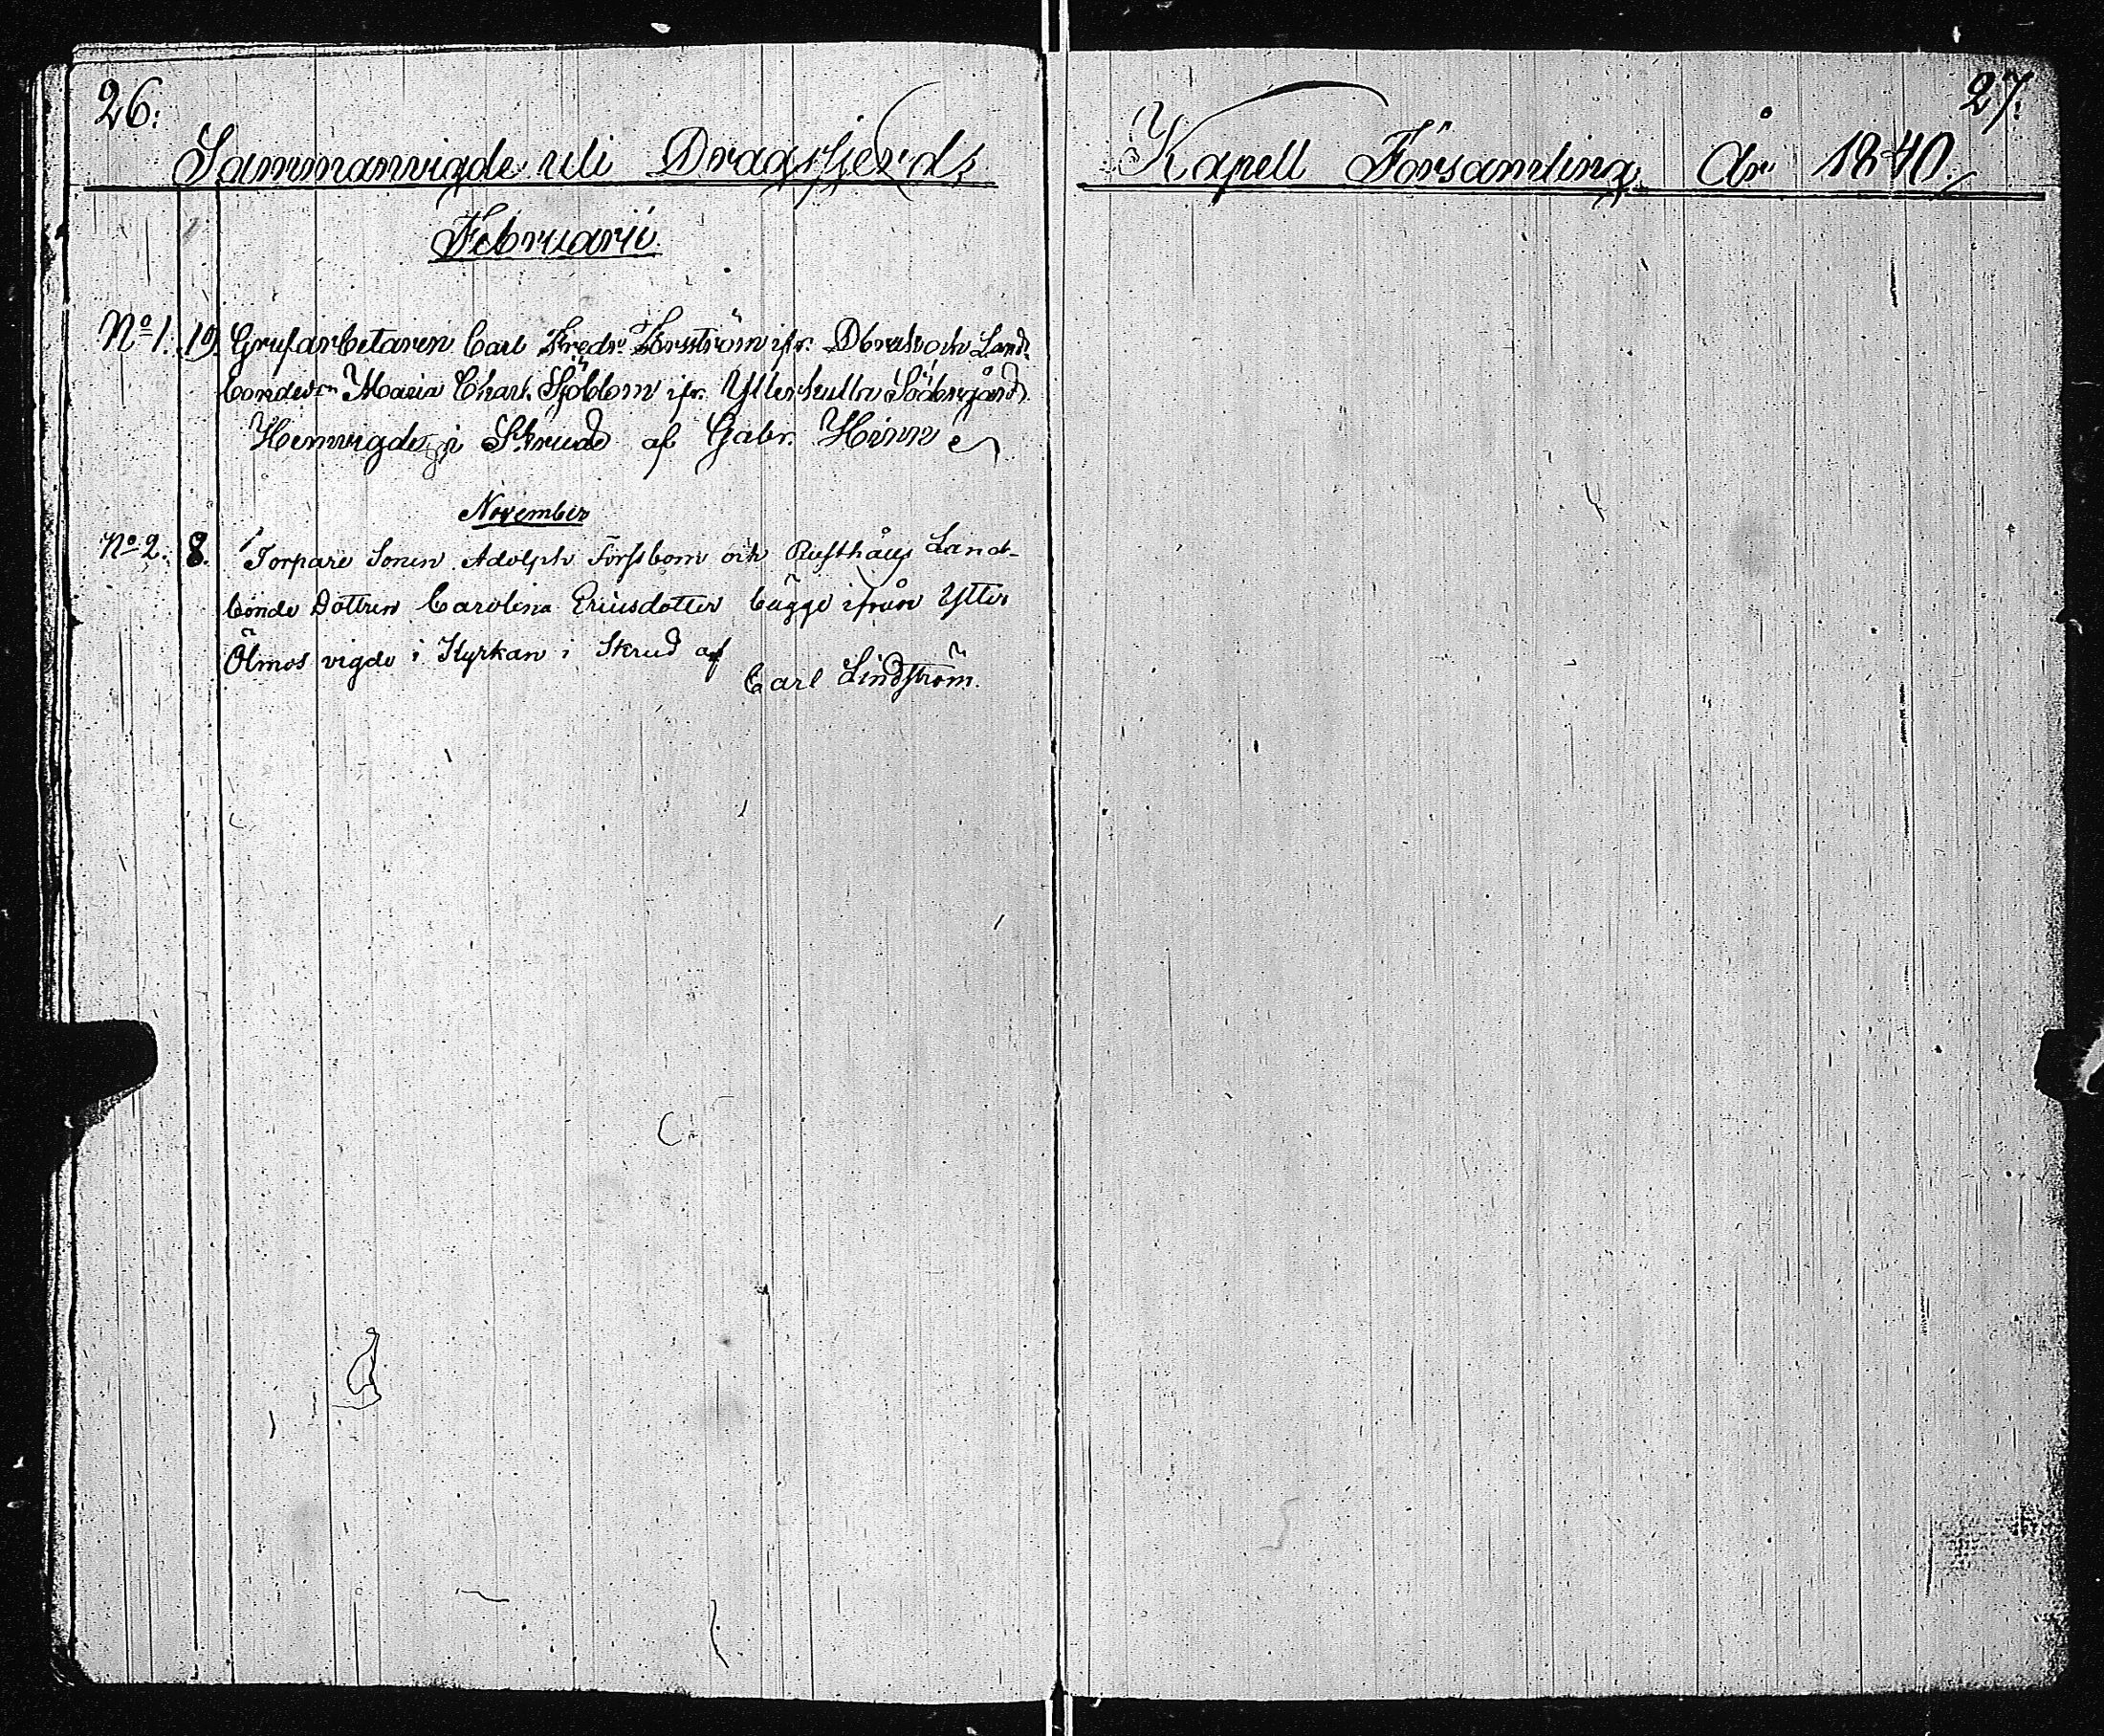 26.
Sammanvigde uti Dragsfjerds
Februarii
No 1. 19. Grufarbetaren Carl Fredr. Forsström ifr. och Land-
bondedrn Maria Charl. Sjöblom ifr. Ytterkulla Södergård
Hemvigde i Skrud af Gabr. Hinné
November
No 2. 8. Torpare Sonen Adolph Forsbom och Rusthålls Land-
bonde Dottren Carolina Ericsdotter bägge ifrån Ytter
Ölmos vigde i Kyrkan i Skrud af
Carl Lindström.
27.
Kapell Församling År 1840.